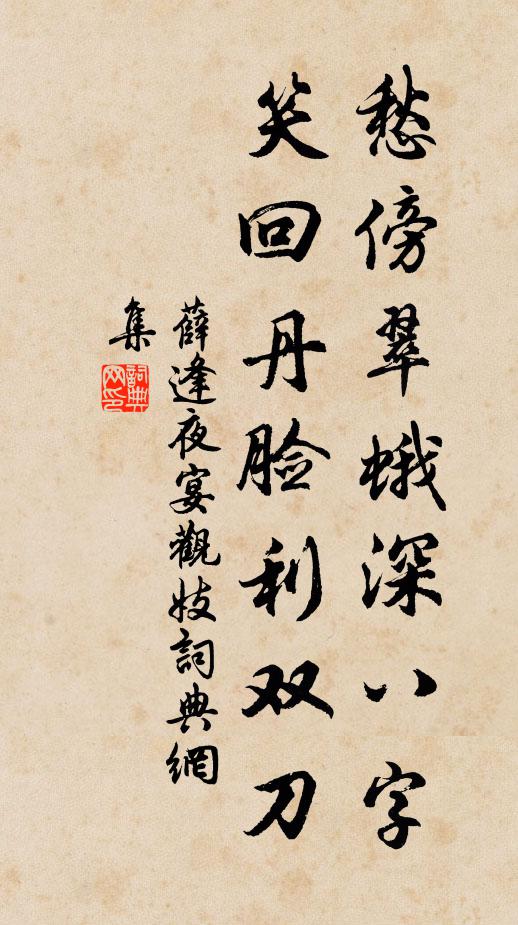 愁傍翠蛾深八字
笑回丹脸利双刀
薛逢夜宴觀妓詞典網
集
詞典網印